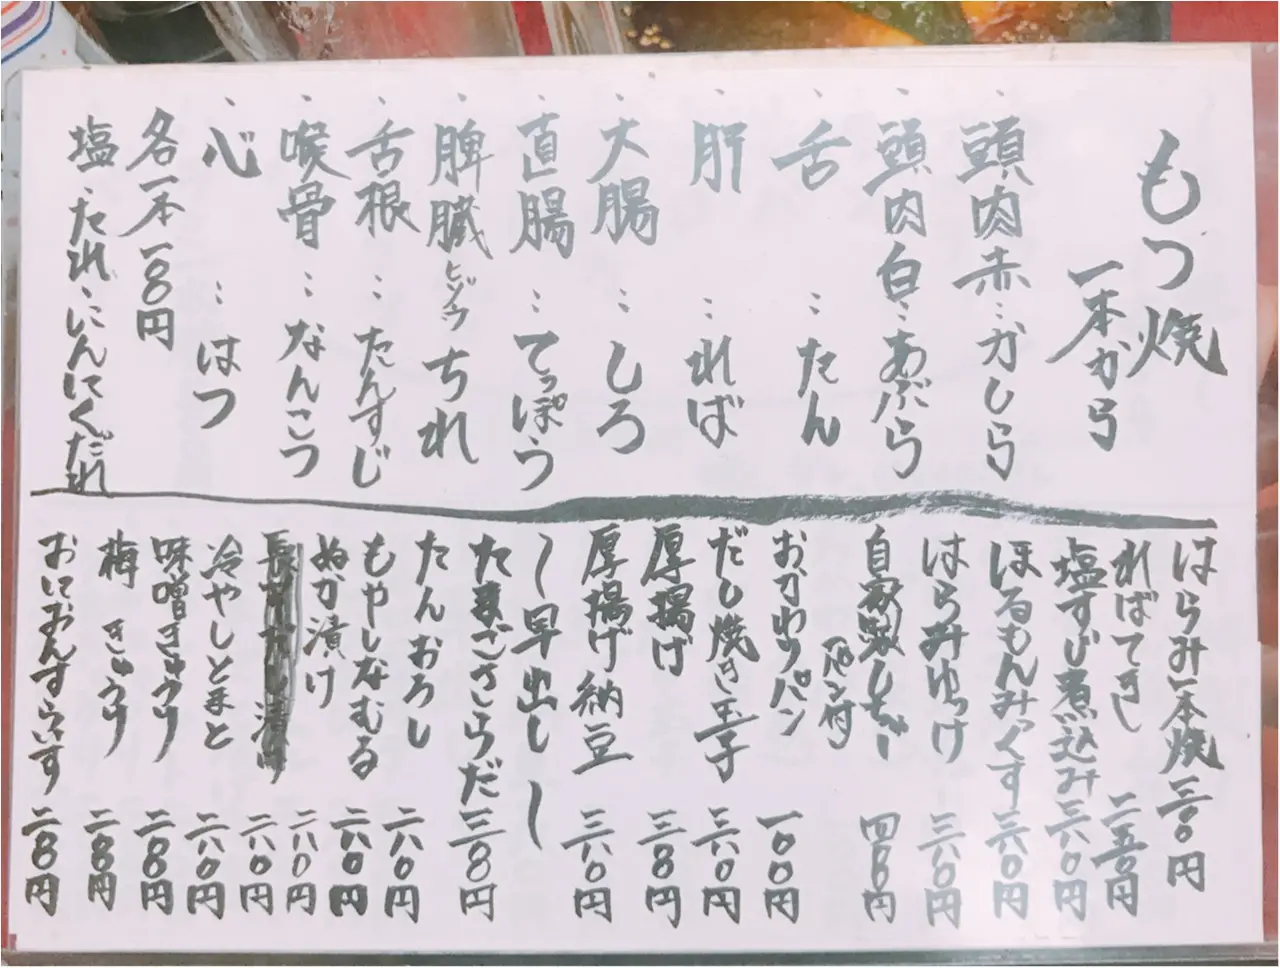 もつ焼
一本から
、頭肉赤…かしら
、頭肉白…あぶら
、舌…たん
、肝…れば
、大腸…しろ
、直腸…てっぽう
、脾臓ヒゾウ ちれ
、舌根…たんすじ
、喉骨…なんこつ
、心…はつ
各一本一〇〇円
塩・たれ・にんにくだれ
はらみ一本焼 三〇〇円
ればてきし 二五〇円
塩すじ煮込み 三六〇円
ほるもんみっくす 三六〇円
はらみゆっけ 三六〇円
自家製 四〇〇円
パン付
おかわりパン 一〇〇円
だし焼き玉子 三六〇円
厚揚げ 三〇〇円
厚揚げ納豆 三六〇円
〜早出し〜
たまごさらだ 三〇〇円
たんおろし 二六〇円
もやしなむる 二六〇円
ぬか漬け 二六〇円
二六〇円
冷やしとまと 二六〇円
味噌きゅうり 二〇〇円
梅きゅうり 二〇〇円
おにおんすらいす 二〇〇円